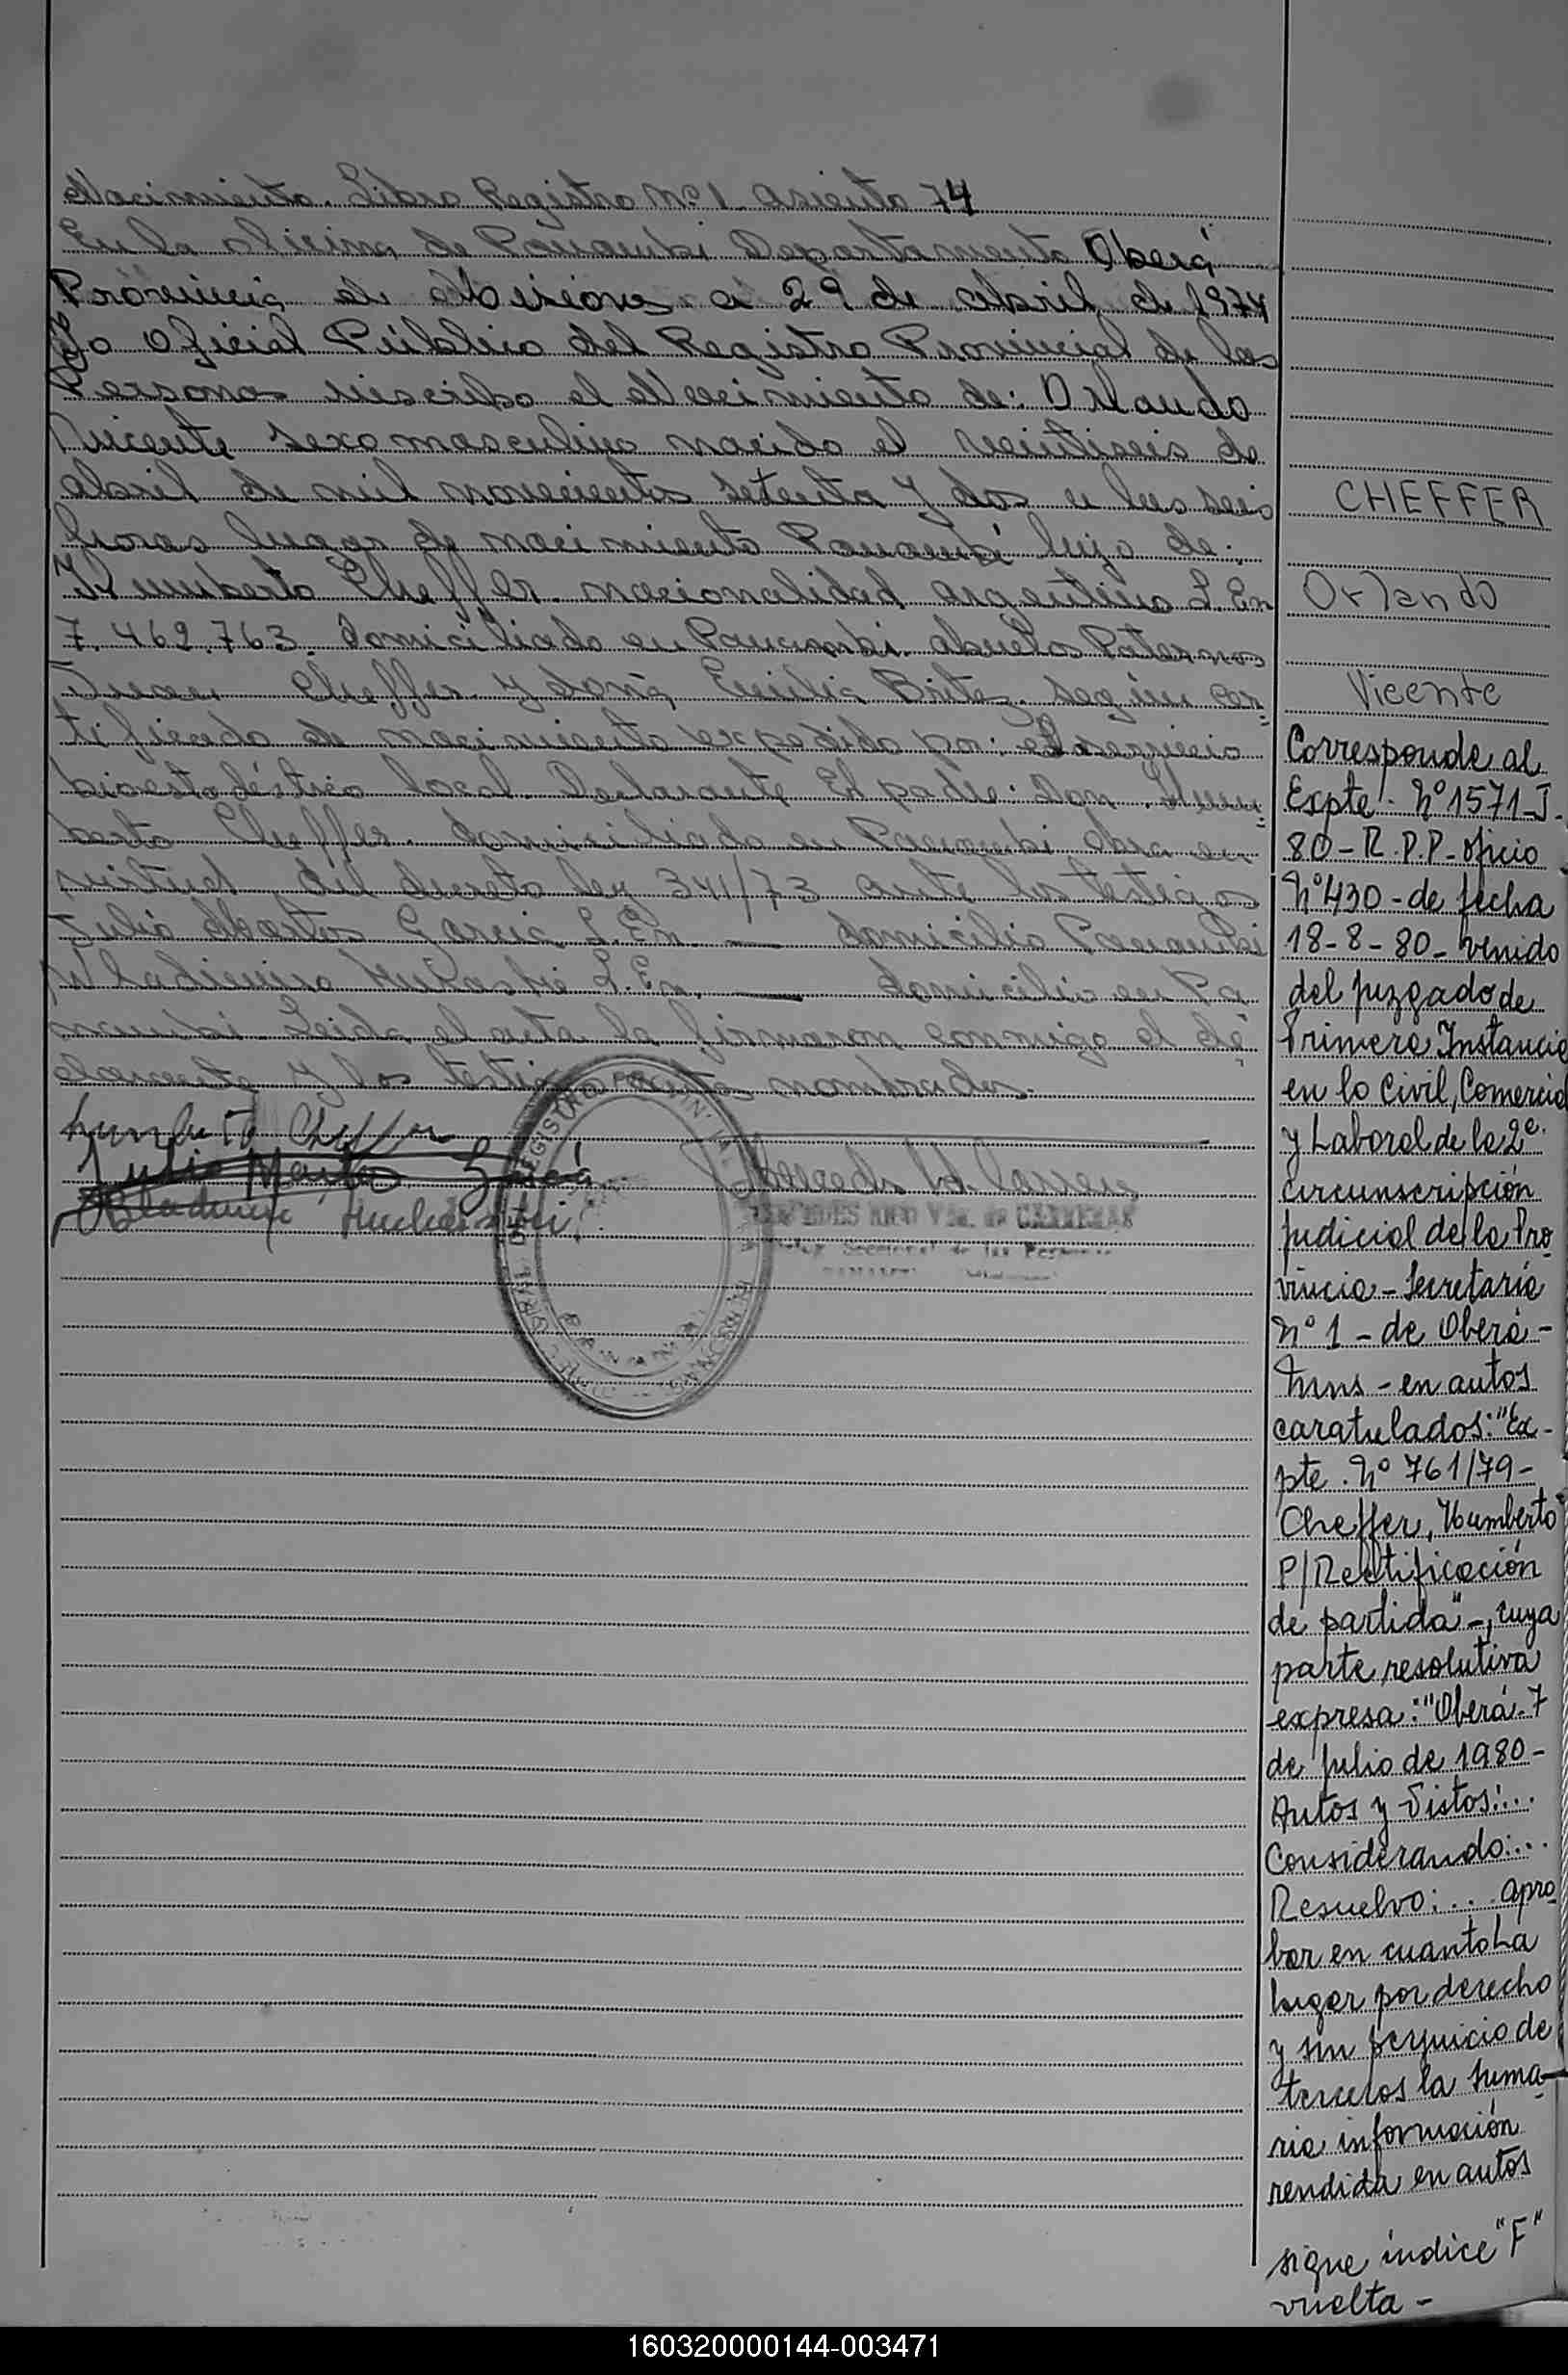 Nacimiento. Libro Registro Nº 1 asiento 74
En la oficina de Panambi Departamento Oberá
Provincia de Misiones a 29 de abril de 1974
Yo Oficial Público del Registro Provincial de las
Personas inscribo el Nacimiento de: Orlando
Vicente sexo masculino nacido el veintiseis de
abril de mil novecientos setenta y dos a las seis
horas lugar de nacimiento Panambi hijo de:
Humberto Cheffer nacionalidad argentino L.En
7.469.763. domiciliado en Panambi. abuelos Paternos
Cheffer y doña Emilia Brites según cer
tificado de nacimiento expedido por: el servicio
bioestadístico local. Declarante El padre: don Hum
berto Cheffer. domiciliado en Panambi obra en
virtud del decreto ley 341/73 ante los testigos
Julio Martos Garcia L.En. — domicilio Panambi
L.En. — domicilio en Pa
nambi Leida el acta la firmaron conmigo el de
clarante y los testigos nombrados.
Humberto Cheffer
Julio Martos Garcia
de CARRERAS
Seccional de las Personas
CHEFFER
Orlando
Vicente
Corresponde al
Expte. Nº 1571-J-
80 - R.P.P. oficio
Nº 430 - de fecha
18-8-80 - venido
del juzgado de
Primera Instancia
en lo Civil, Comercial
y Laboral de la 2ª
circunscripción
judicial de la Pro
vincia - Secretaría
Nº 1 - de Oberá -
Mns - en autos
caratulados: "Ex-
pte. Nº 761/79 -
Cheffer, Humberto
P/Rectificación
de partida" -, cuya
parte resolutiva
expresa: "Oberá. 7
de julio de 1980 -
Autos y Vistos:...
Considerando:...
Resuelvo:... apro
bar en cuanto ha
lugar por derecho
y sin perjuicio de
terceros la suma-
ria información
rendida en autos
sigue indice "F"
vuelta -
160320000144-003471